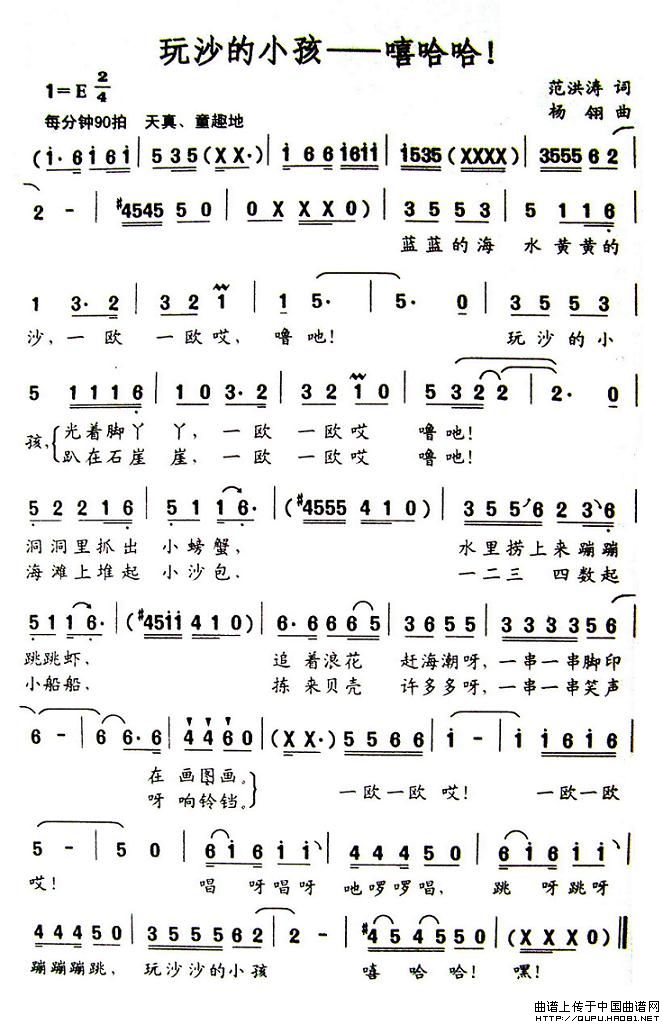 玩沙的小孩——嘻哈哈！
1=E 2/4
范洪涛 词
杨翎 曲
每分钟90拍 天真、童趣地
(i·6i6i | 535(XX·) | i66i6ii | i535(XXXX) | 355562 |
2 - | #454550 | 0XXX0) | 3553 | 5116 |
蓝蓝的海 水黄黄的
1 3·2 | 32i | i5· | 5·0 | 3553 |
沙，一欧 一欧哎，噜吔！ 玩沙的小
5 1116 | 103·2 | 32i0 | 5322 | 2·0 |
孩，光着脚丫 丫，一欧 一欧哎 噜吔！
趴在石崖 崖，一欧 一欧哎 噜吔！
52216 | 5116· | (#4555410) | 355623·6 |
洞洞里抓出 小螃蟹， 水里捞上来蹦蹦
海滩上堆起 小沙包， 一二三 四数起
5116· | (#45ii410) | 6·6665 | 3655 | 333355 |
跳跳虾， 追着浪花 赶海潮呀，一串一串脚印
小船船， 拣来贝壳 许多多呀，一串一串笑声
6 - | 66·6 | 4460 | (XX·) | 5566 | i - | i i6i6 |
在画图画。 一欧一欧 哎！ 一欧一欧
呀响铃铛。
5 - | 50 | 6i6ii | 444550 | 6i6ii |
哎！ 唱呀唱呀 吔啰啰唱， 跳呀跳呀
44450 | 3555562 | 2 - | #454550 | (XXX0) ‖
蹦蹦蹦跳， 玩沙沙的小孩 嘻哈哈！ 嘿！
曲谱上传于中国曲谱网
HTTP://QUPU.HAO81.NET